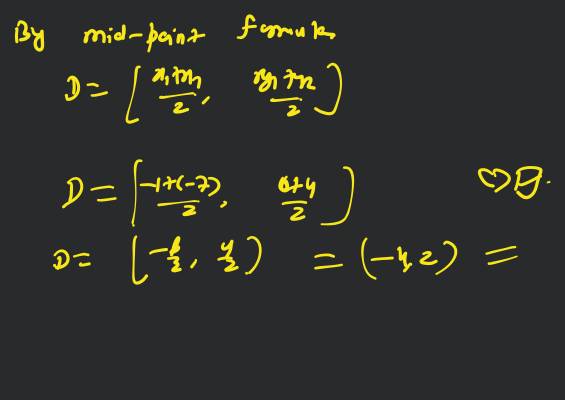 By mid-point formula
D = [ x₁+x₂/2, y₁+y₂/2 )
D = [ -1+(-7)/2, 0+4/2 )
D = [ -8/2, 4/2 ) = (-4, 2) =